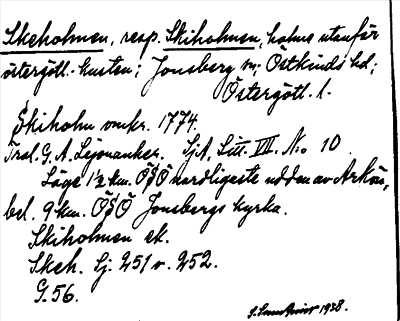 Skeholmen, resp. Skiholmen, holme utanför
östergötl. kusten; Jonsberg sn; Östkinds hd;
Östergötl. l.
Skiholm omkr. 1774.
Trol. G. A. Lejonanker. Sj.A. Litt. VII. No 10.
Läge 1½ km. ÖSÖ nordligaste udden av Arkön,
bel. 9 km. ÖSÖ Jonsbergs kyrka.
Skiholmen ek.
Skeh. Sj. 251 o. 252.
G. 56.
1938.